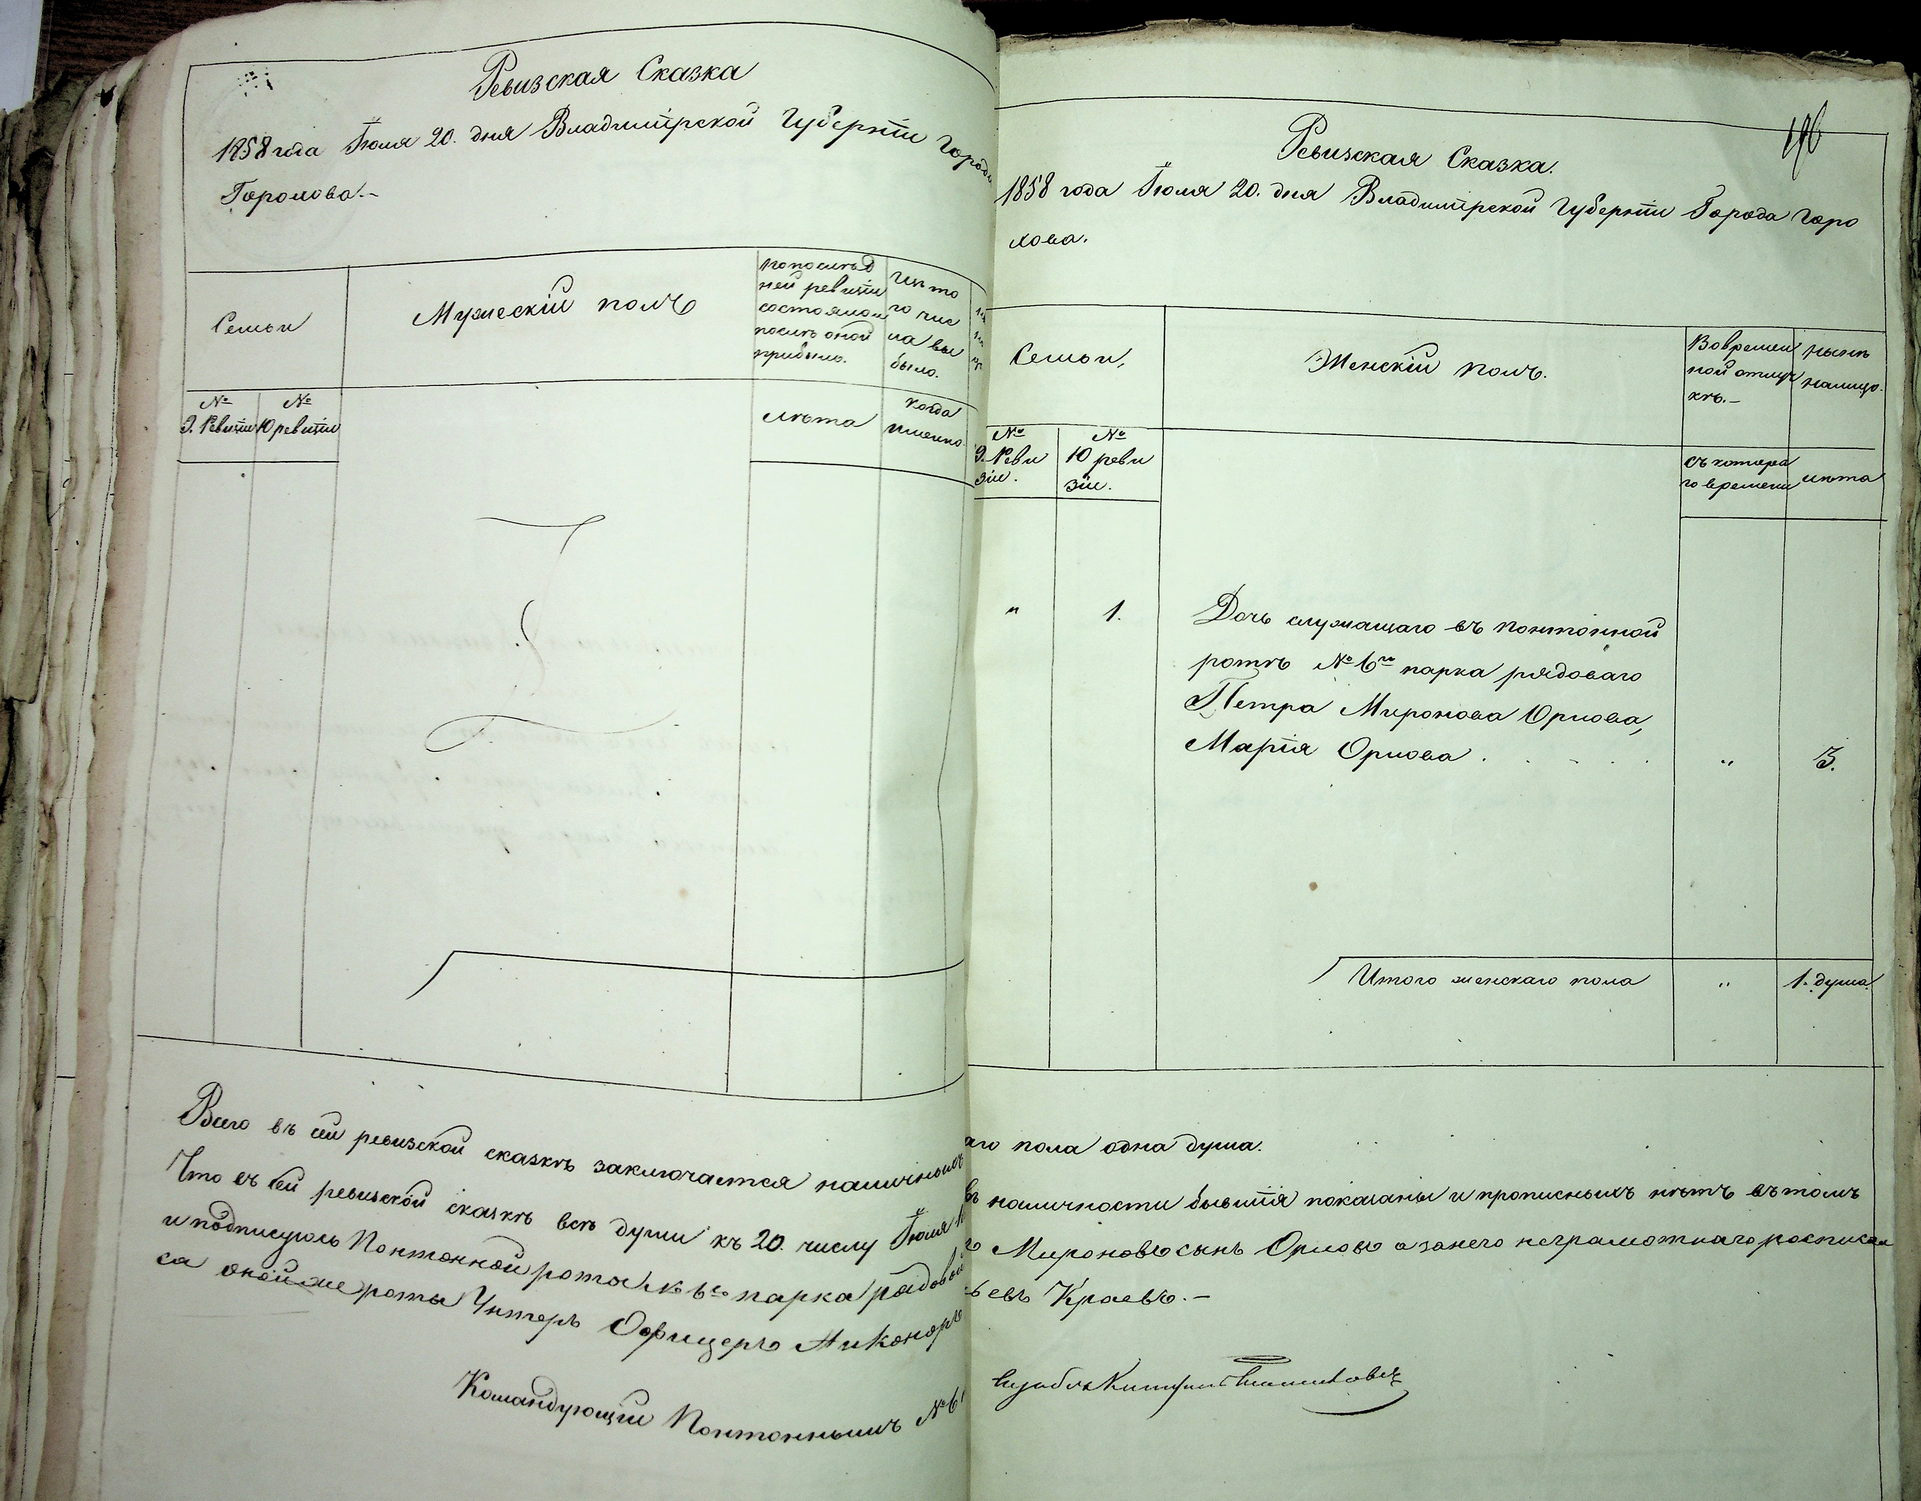 Ревизская Сказка
1858 года Іюля 20. дня Владимірской Губерніи Города
Горохова.-
Семьи
Мужескій полъ
По послѣд
ней ревизіи
состояло и
послѣ оной
прибыло.
Изъ то
го чис
ла вы
было.
№
9. Ревизіи
№
10 ревизіи
лѣта
когда
именно.
Всего въ сей ревизской сказкѣ заключается наличныхъ
Что въ сей ревизской сказкѣ всѣ души къ 20. числу Іюля
и подписуюсь Понтонной роты № 6го парка рядовой
са оной же роты Унтеръ Офицеръ Никоноръ
Командующій Понтоннымъ № 6
196
Ревизская Сказка.
1858 года Іюля 20. дня Владимірской Губерніи Города Горо
хова.
Семьи,
Женскій полъ.
Во времен
ной отлуч
кѣ.-
нынѣ
налицо.
№
9. Реви
зіи.
№
10 реви
зіи.
съ котора
го времени
лѣта
" 1. Дочь служащаго въ понтонной
ротѣ № 6го парка рядоваго
Петра Миронова Орлова,
Марія Орлова . . . . " 3.
Итого женскаго пола " 1. душа.
аго пола одна душа.
въ наличности бывшія показаны и прописныхъ нѣтъ въ томъ
Мироновъ сынъ Орловъ а за него неграмотнаго росписал
евъ Краевъ.-